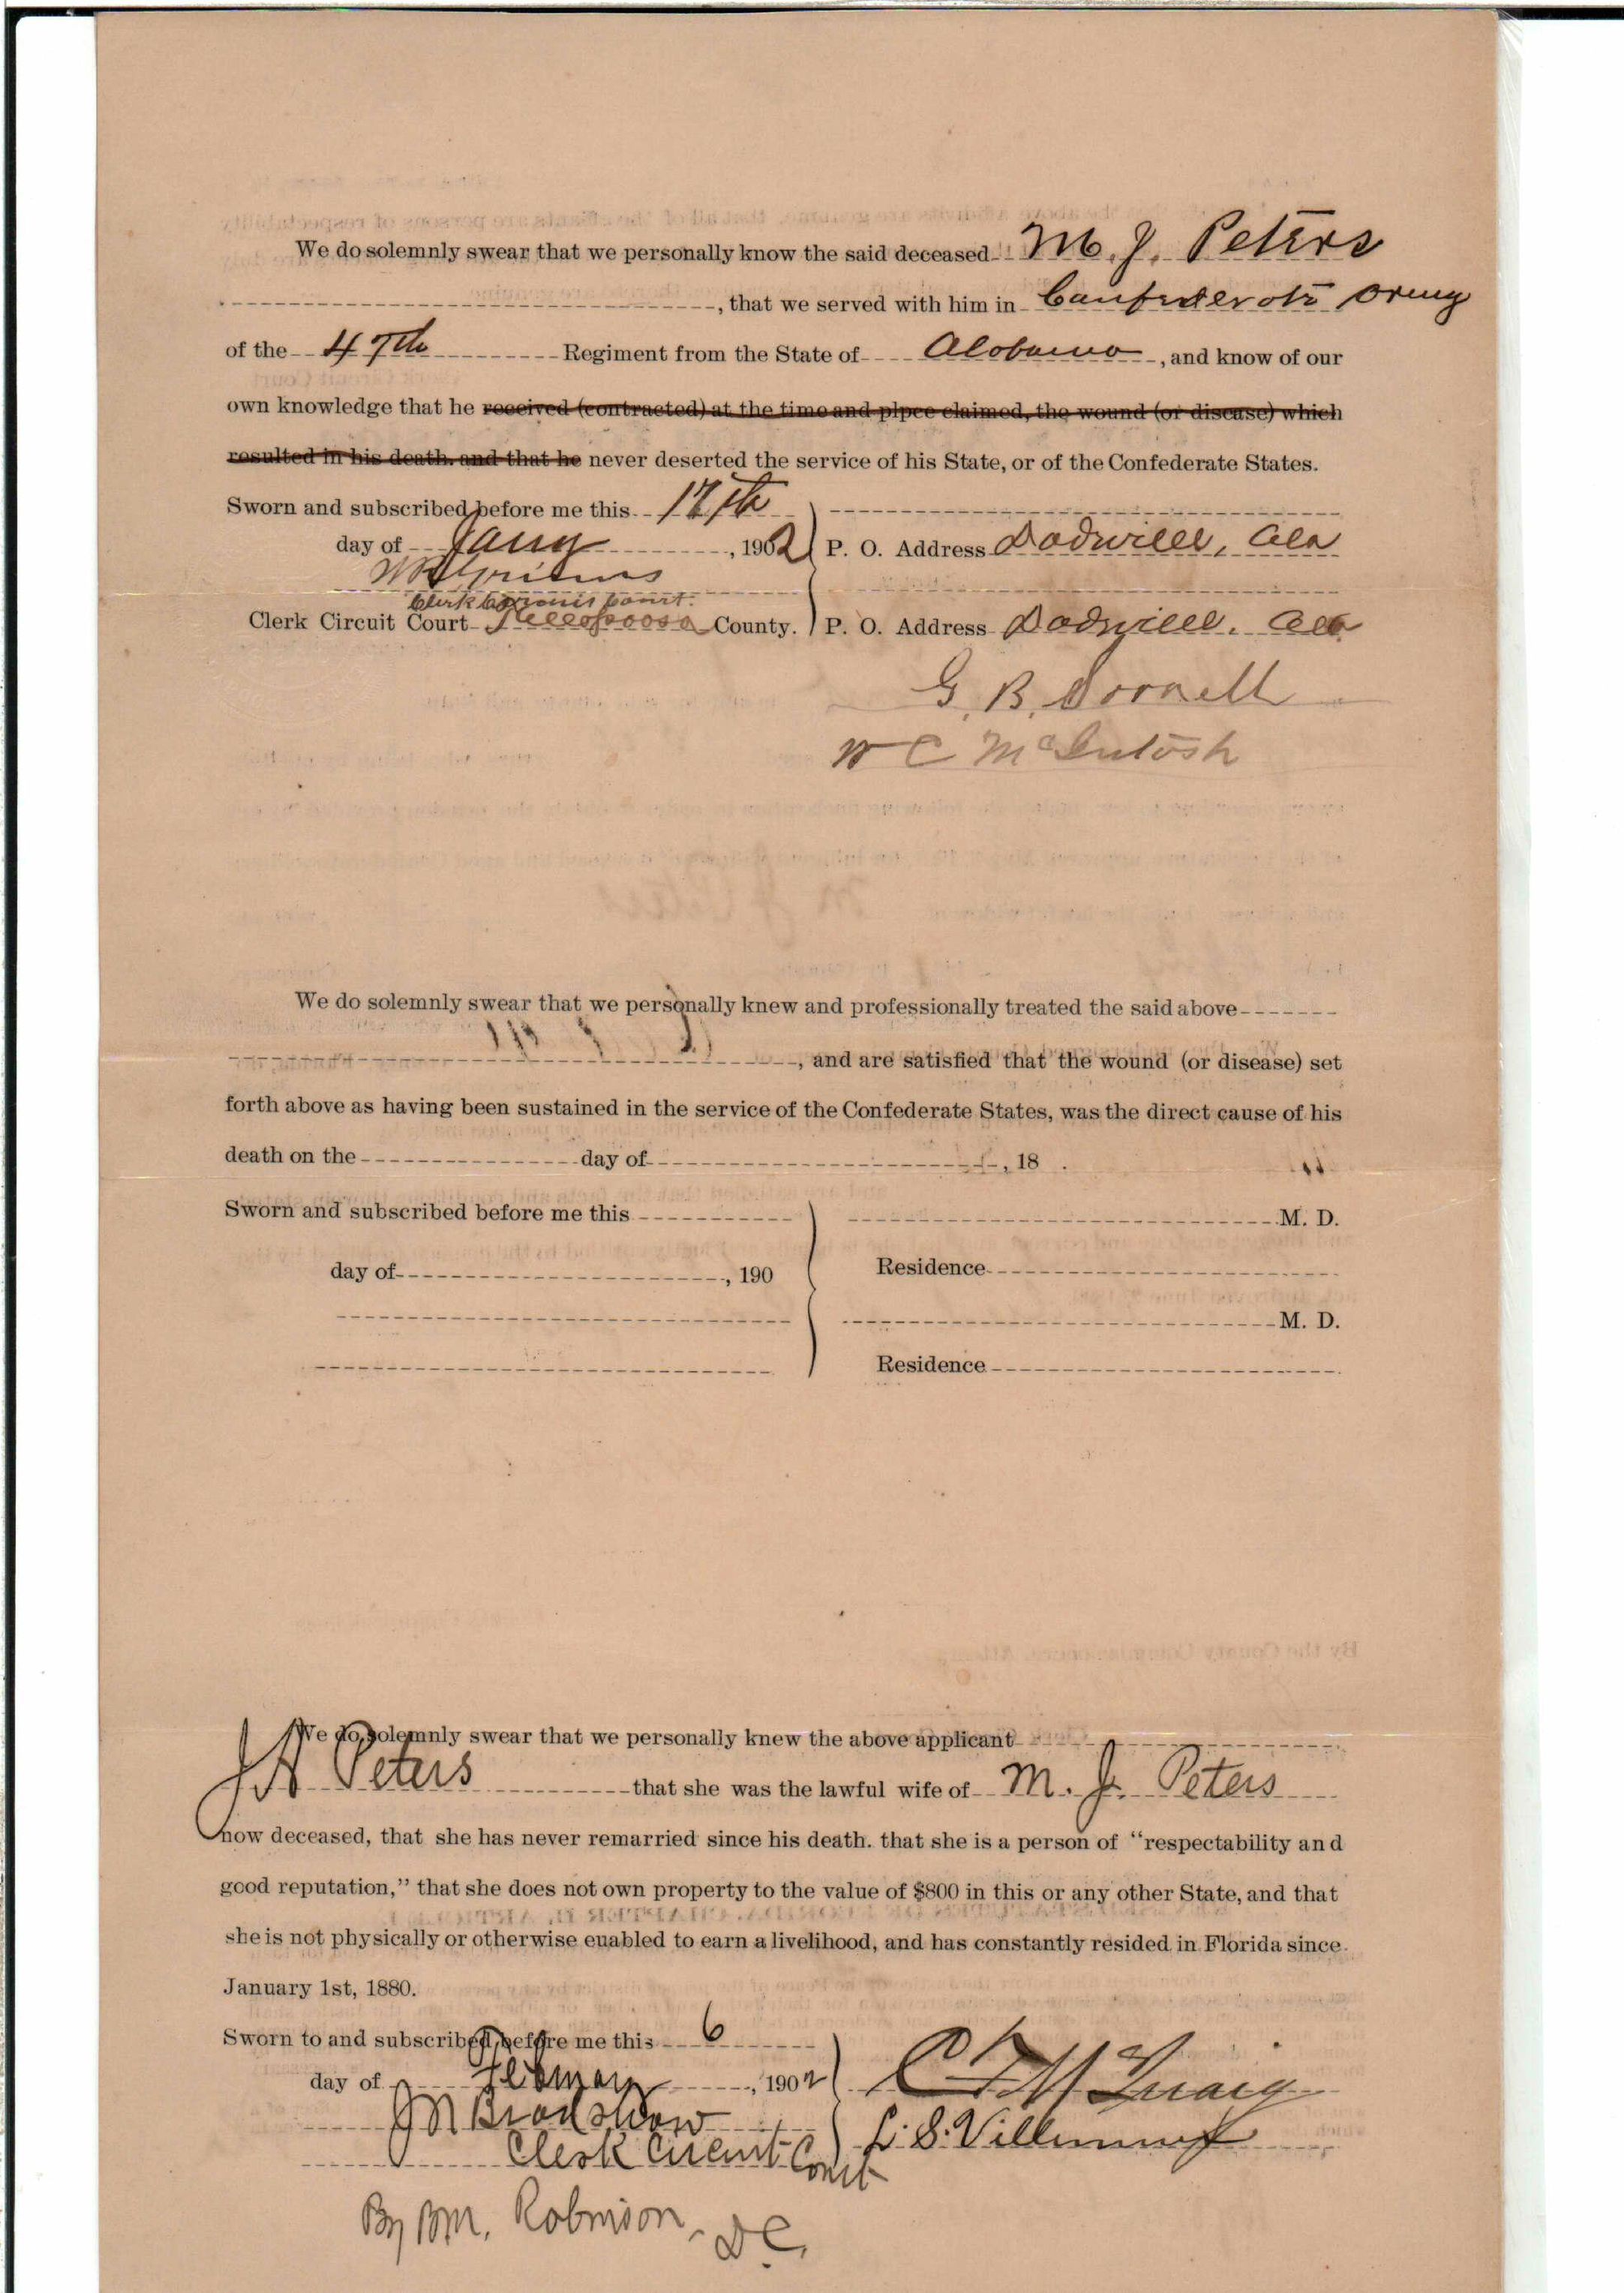 We do solemnly swear that we personally know the said deceased M. J. Peters
, that we served with him in Confederate Army
of the 47th Regiment from the State of Alabama, and know of our
own knowledge that he received (contracted) at the time and plpce claimed, the wound (or disease) which
resulted in his death. and that he never deserted the service of his State, or of the Confederate States.
Sworn and subscribed before me this 17th
day of Jany, 1902 P. O. Address Dadville, Ala
Clerk Circuit Court.
Clerk Circuit Court Tallapoosa County. P. O. Address Dadville, Ala
G. B. Sorrell
W C McIntosh
We do solemnly swear that we personally knew and professionally treated the said above
, and are satisfied that the wound (or disease) set
forth above as having been sustained in the service of the Confederate States, was the direct cause of his
death on the day of , 18 .
Sworn and subscribed before me this M. D.
day of , 190 Residence
M. D.
Residence
We do solemnly swear that we personally knew the above applicant
J A Peters that she was the lawful wife of M. J. Peters
now deceased, that she has never remarried since his death. that she is a person of “respectability and
good reputation,” that she does not own property to the value of $800 in this or any other State, and that
she is not physically or otherwise euabled to earn a livelihood, and has constantly resided in Florida since
January 1st, 1880.
Sworn to and subscribed before me this 6
day of February, 1902
J M Bradshaw L. S. Villeminy
Clerk Circuit Court
By BM. Robinson, DC.